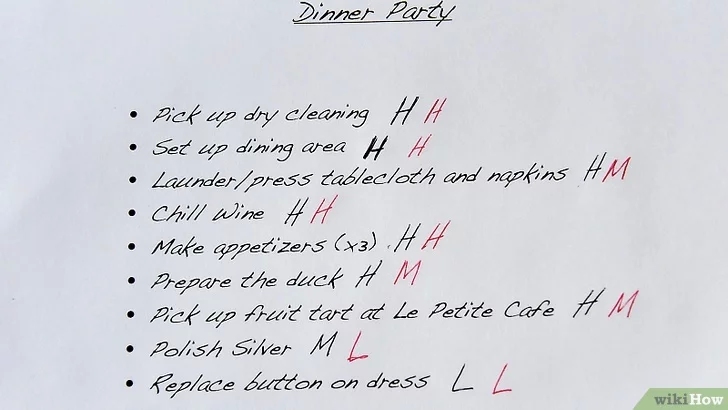 Dinner Party
• Pick up dry cleaning H H
• Set up dining area H H
• Launder/press tablecloth and napkins H M
• Chill Wine H H
• Make appetizers (x3) . H H
• Prepare the duck H M
• Pick up fruit tart at Le Petite Cafe H M
• Polish Silver M L
• Replace button on dress L L
wikiHow